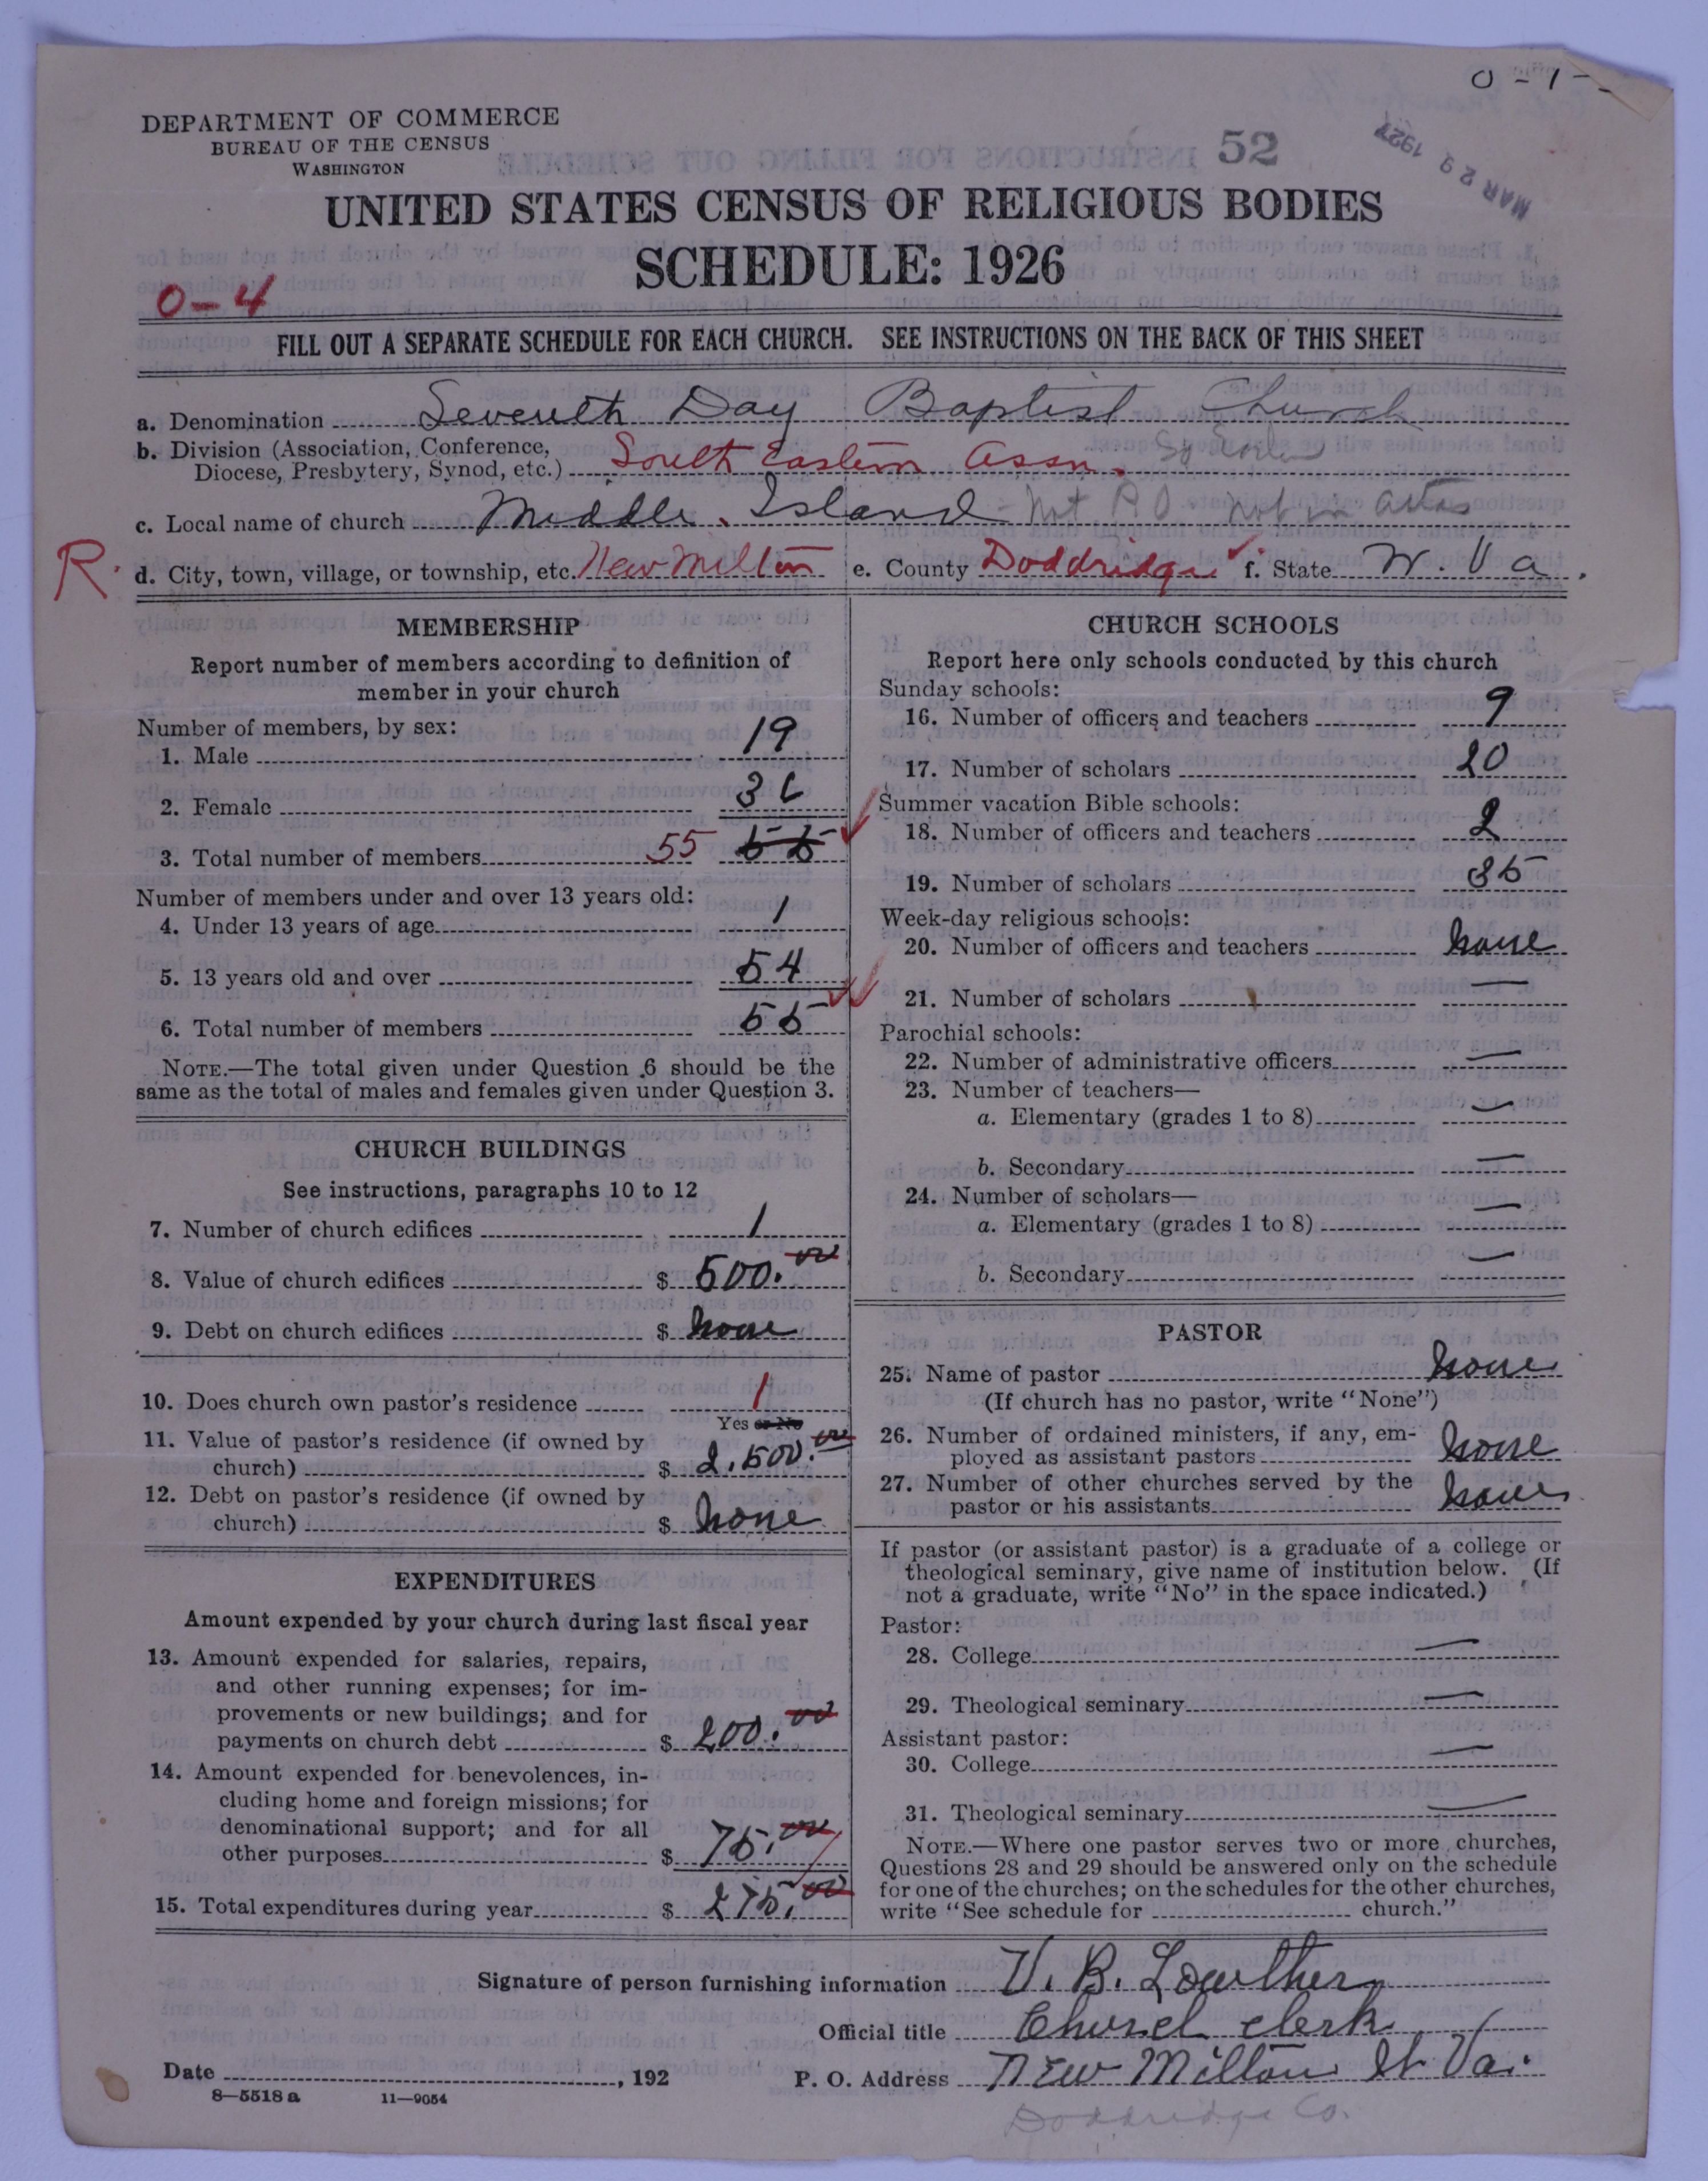 0-1-
DEPARTMENT OF COMMERCE
BUREAU OF THE CENSUS
WASHINGTON
52
MAR 29 1927
UNITED STATES CENSUS OF RELIGIOUS BODIES
SCHEDULE: 1926
0-4
FILL OUT A SEPARATE SCHEDULE FOR EACH CHURCH. SEE INSTRUCTIONS ON THE BACK OF THIS SHEET
a. Denomination Seventh Day Baptist Church
b. Division (Association, Conference,
Diocese, Presbytery, Synod, etc.) South Eastern Assn.
c. Local name of church Middle Island - Not P.O. Not in atlas
R. d. City, town, village, or township, etc. New Milton e. County Doddridge f. State W. Va.
MEMBERSHIP
Report number of members according to definition of
member in your church
Number of members, by sex:
1. Male 19
2. Female 36
3. Total number of members 55 55
Number of members under and over 13 years old:
4. Under 13 years of age 1
5. 13 years old and over 54
6. Total number of members 55
NOTE.—The total given under Question 6 should be the
same as the total of males and females given under Question 3.
CHURCH BUILDINGS
See instructions, paragraphs 10 to 12
7. Number of church edifices 1
8. Value of church edifices $ 500.00
9. Debt on church edifices $ none
10. Does church own pastor's residence 1
Yes or No
11. Value of pastor's residence (if owned by
church) $ 2,500.00
12. Debt on pastor's residence (if owned by
church) $ none
EXPENDITURES
Amount expended by your church during last fiscal year
13. Amount expended for salaries, repairs,
and other running expenses; for im-
provements or new buildings; and for
payments on church debt $ 200.00
14. Amount expended for benevolences, in-
cluding home and foreign missions; for
denominational support; and for all
other purposes $ 75.00
15. Total expenditures during year $ 275.00
CHURCH SCHOOLS
Report here only schools conducted by this church
Sunday schools:
16. Number of officers and teachers 9
17. Number of scholars 20
Summer vacation Bible schools:
18. Number of officers and teachers 2
19. Number of scholars 35
Week-day religious schools:
20. Number of officers and teachers none
21. Number of scholars —
Parochial schools:
22. Number of administrative officers —
23. Number of teachers—
a. Elementary (grades 1 to 8) —
b. Secondary —
24. Number of scholars—
a. Elementary (grades 1 to 8) —
b. Secondary —
PASTOR
25. Name of pastor none
(If church has no pastor, write "None")
26. Number of ordained ministers, if any, em-
ployed as assistant pastors none
27. Number of other churches served by the
pastor or his assistants none
If pastor (or assistant pastor) is a graduate of a college or
theological seminary, give name of institution below. (If
not a graduate, write "No" in the space indicated.)
Pastor:
28. College —
29. Theological seminary —
Assistant pastor:
30. College —
31. Theological seminary —
NOTE.—Where one pastor serves two or more churches,
Questions 28 and 29 should be answered only on the schedule
for one of the churches; on the schedules for the other churches,
write "See schedule for church."
Signature of person furnishing information U. B. Lowther
Official title Church clerk
Date , 192 P. O. Address New Milton W Va.
8—5518 a 11—9054
Doddridge Co.